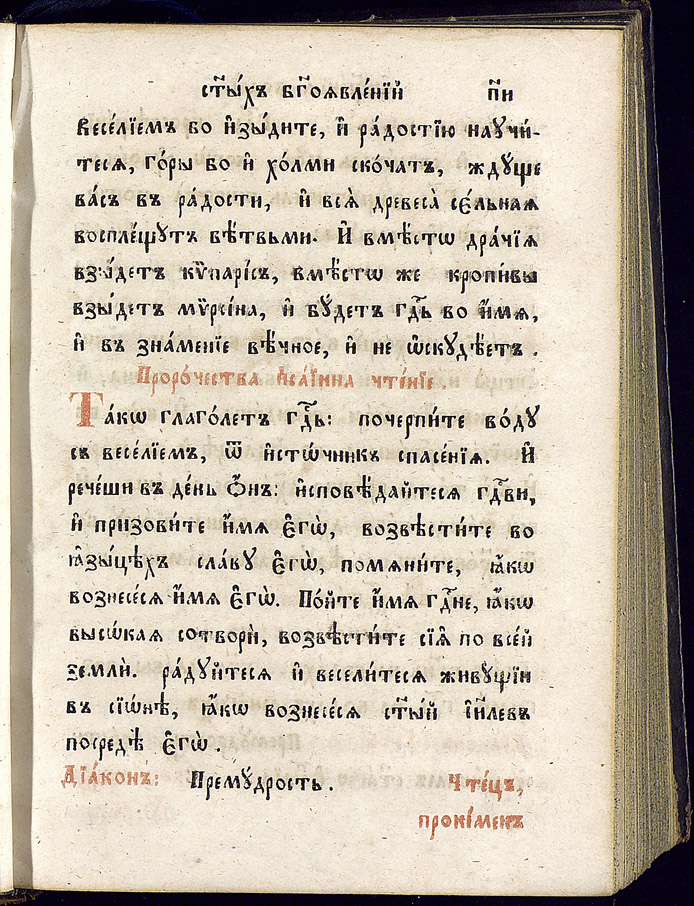 ст҃ы́хъ бг҃оявле́нїй п҃и
весе́лїемъ бо и҆зы́дите, и҆ ра́достїю научи́-
теся, го́ры бо и҆ хо́лми ско́чатъ, ждуще
ва́съ въ ра́дости, и҆ вся̀ древеса̀ се́льная
воспле́щутъ вѣ́твьми. И҆ вмѣ́стѡ дра́чїя
взы́детъ кѷпарі́съ, вмѣ́стѡ же кропи́вы
взы́детъ мѷрсі́на, и҆ бу́детъ гдⷭ҇ь во и҆́мя,
и҆ въ зна́менїе вѣ́чное, и҆ не ѡ҆скудѣ́етъ.
Проро́чества И҆са́їина чте́нїе
Та́кѡ глаго́летъ гдⷭ҇ь: почерпи́те во́ду
съ весе́лїемъ, ѿ и҆стѡ́чникъ спасе́нїя. И҆
рече́ши въ де́нь ѻ҆́нъ: и҆сповѣ́дайтеся гдⷭ҇ви,
и҆ призови́те и҆́мя є҆гѡ̀, возвѣсти́те во
ꙗ҆зы́цѣхъ сла́ву є҆гѡ̀, помяни́те, ꙗ҆́кѡ
вознесе́ся и҆́мя є҆гѡ̀. По́йте и҆́мя гдⷭ҇не, ꙗ҆́кѡ
высѡ́кая сотворѝ, возвѣсти́те сїя̑ по все́й
землѝ. ра́дуйтеся и҆ весели́теся живу́щїи
въ сїѡ́нѣ, ꙗ҆́кѡ вознесе́ся ст҃ы́й і҆и҃левъ
посредѣ̀ є҆гѡ̀.
Дїа́конъ: Прему́дрость. Чте́цъ,
проки́менъ